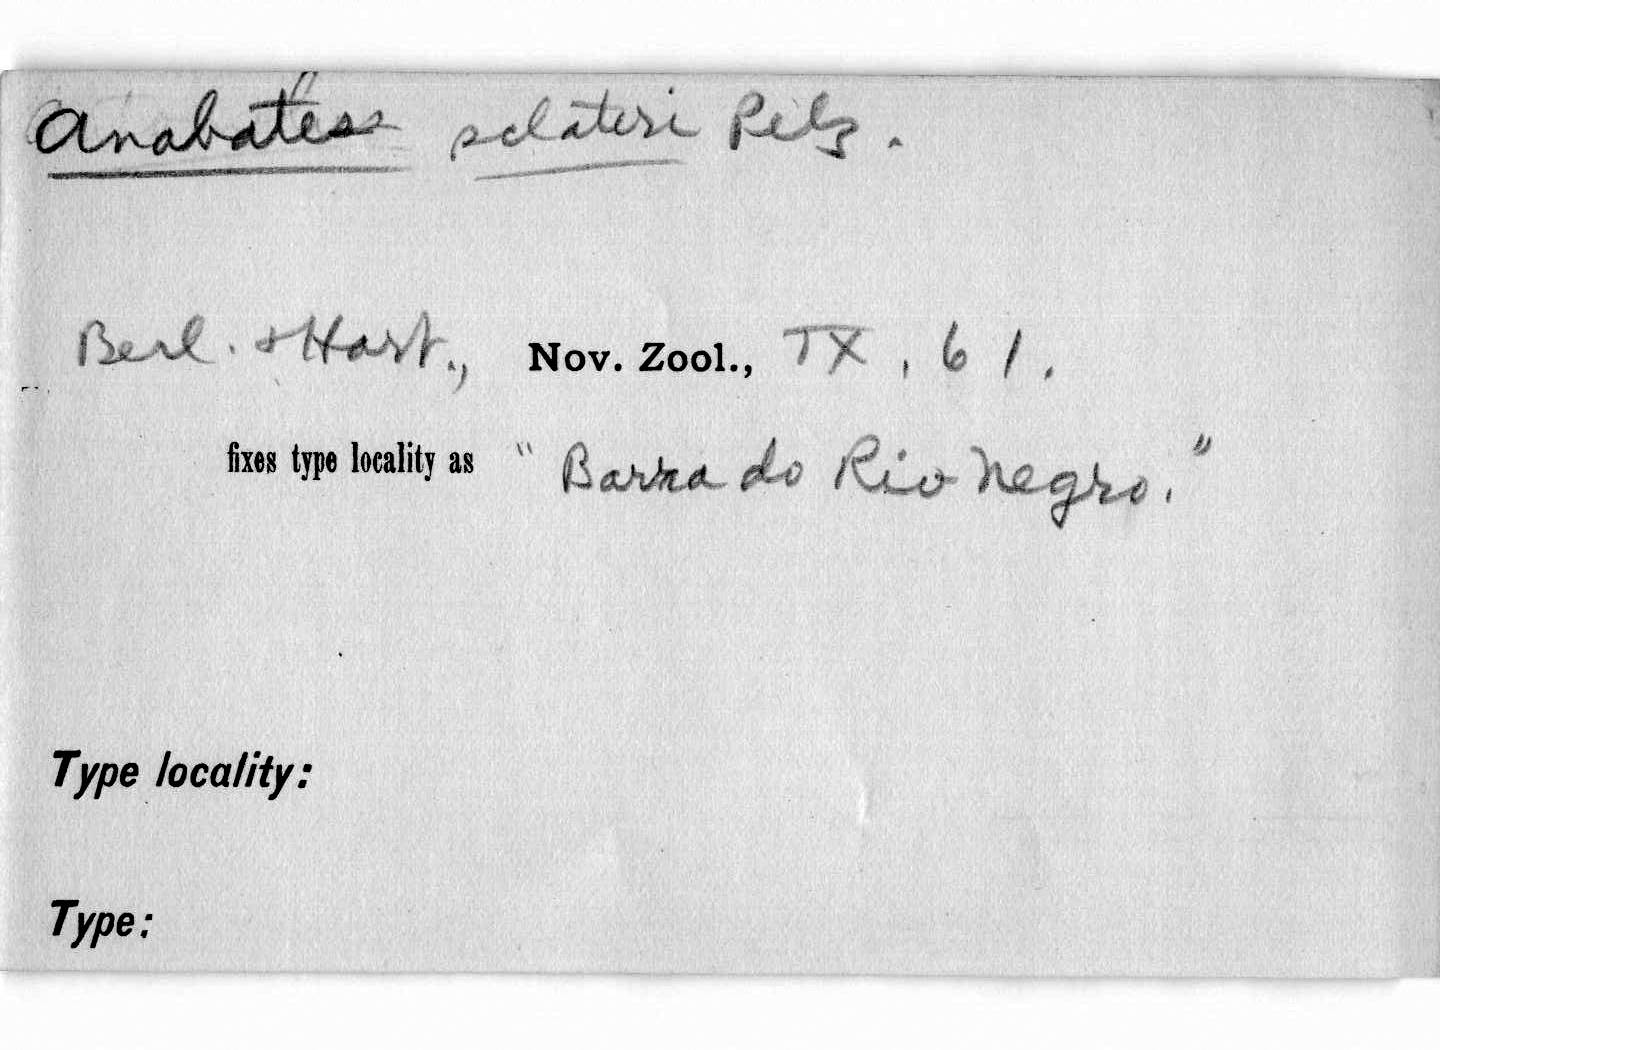 Anabates sclateri Pelz.
Berl. & Hart., Nov. Zool., IX, 61.
fixes type locality as "Barra do Rio Negro."
Type locality:
Type: